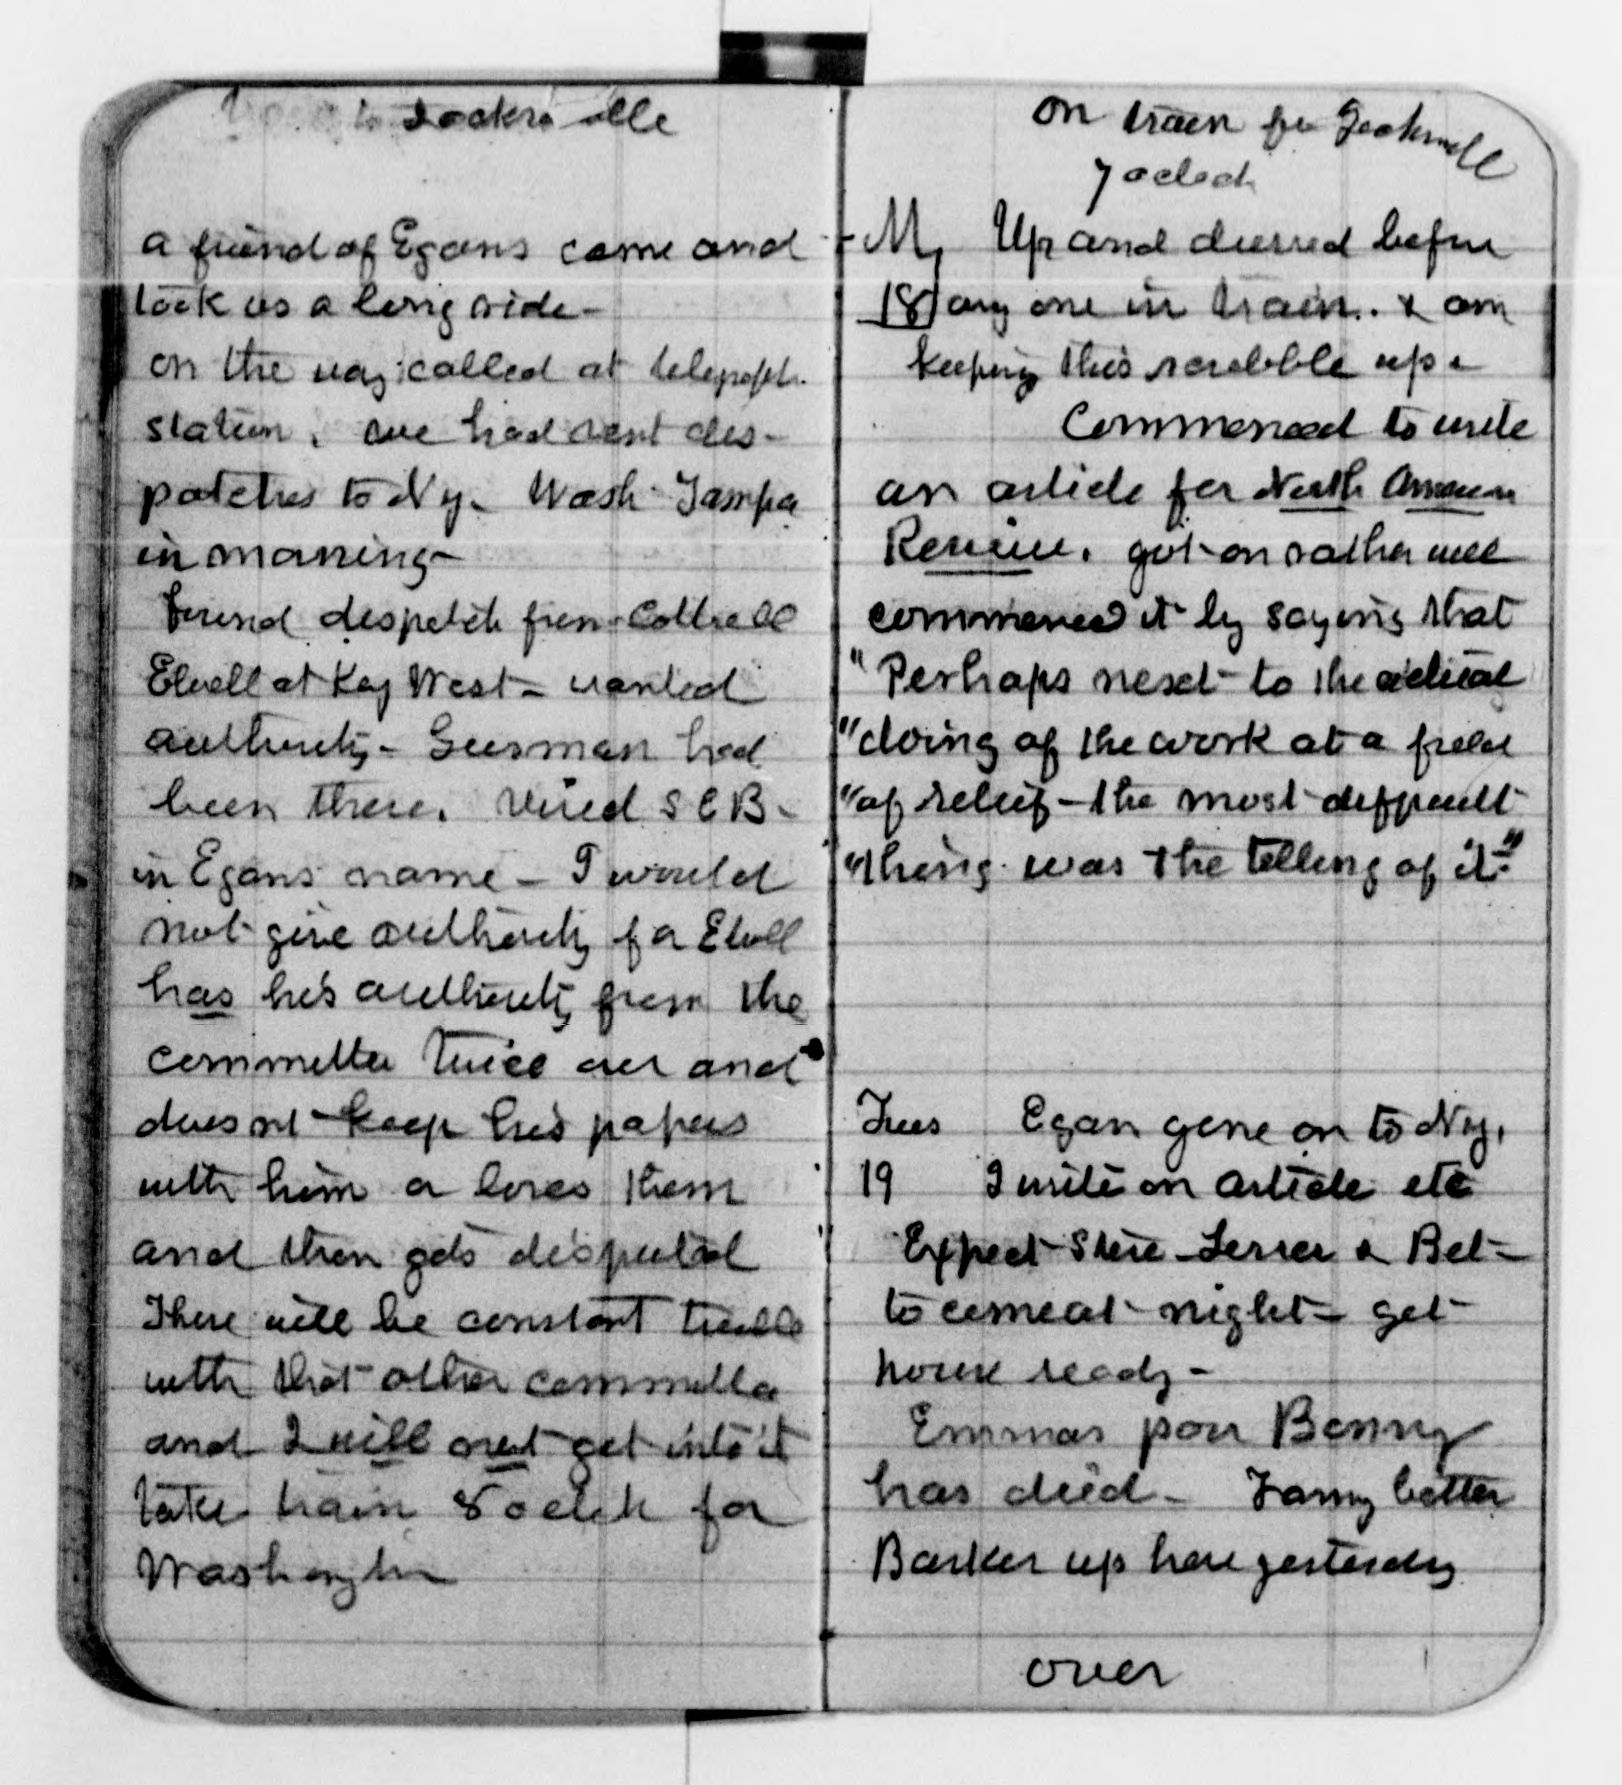 to Jacksonville
a friend of Egans came and
took us a long ride -
on the way called at telegraph
station. we had sent des-
patches to Ny - Wash - Tampa
in morning -
found despatch from Cottrell
Elwell at Key West - wanted
authority - Gussman had
been there. Wired S E B -
in Egans name - I would
not give authority for Elwell
has his authority from the
committee twice over and
does not keep his papers
with him or loses them
and then gets disputed
There will be constant trouble
with that other committee
and I will not get into it
take train 8 oclck for
Washington
on train for Jacksonville
7 oclock
M, Up and dressed before
18 any one in train. & am
keeping this scrabble up -
Commenced to write
an article for North American
Review. got on rather well
commenced it by saying that
"Perhaps next to the actual
"doing of the work at a field
"of relief - the most difficult
"thing was the telling of it -"
Tues Egan gone on to Ny,
19 I write on article etc
Expect Stere - Lesser & Bet -
to come at night - get
house ready -
Emmas poor Benny
has died - Fanny better
Barker up here yesterday
over